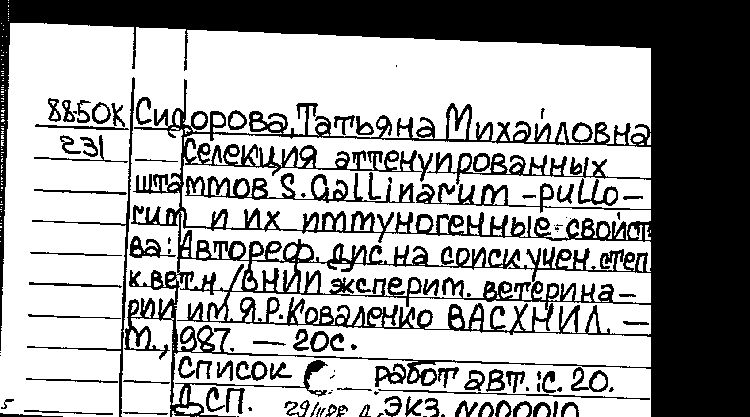 88-50К Сидорова, Татьяна Михайловна
231 Селекция аттенуированных
штаммов S. Gallinarum - pullo-
rum и их иммуногенные свойст
ва: Автореф. дис. на соиск. учен. степ.
к. вет. н. / ВНИИ эксперим. ветерина-
рии им. Я.Р. Коваленко ВАСХНИЛ. —
М., 1987. — 20с.
Список работ авт.: с. 20.
ДСП. Экз. N000010